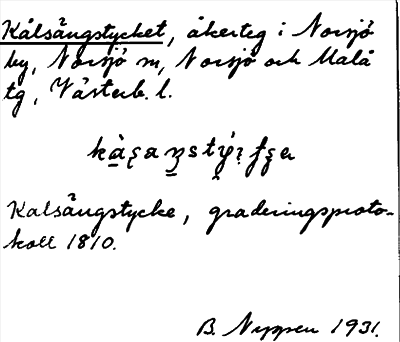 Kålsängstycket, åkerteg i Norsjö
by, Norsjö sn, Norsjö och Malå
tg, Västerb. l.
Kalsängstycke, graderingsproto-
koll 1810.
B. Nyssen 1931.